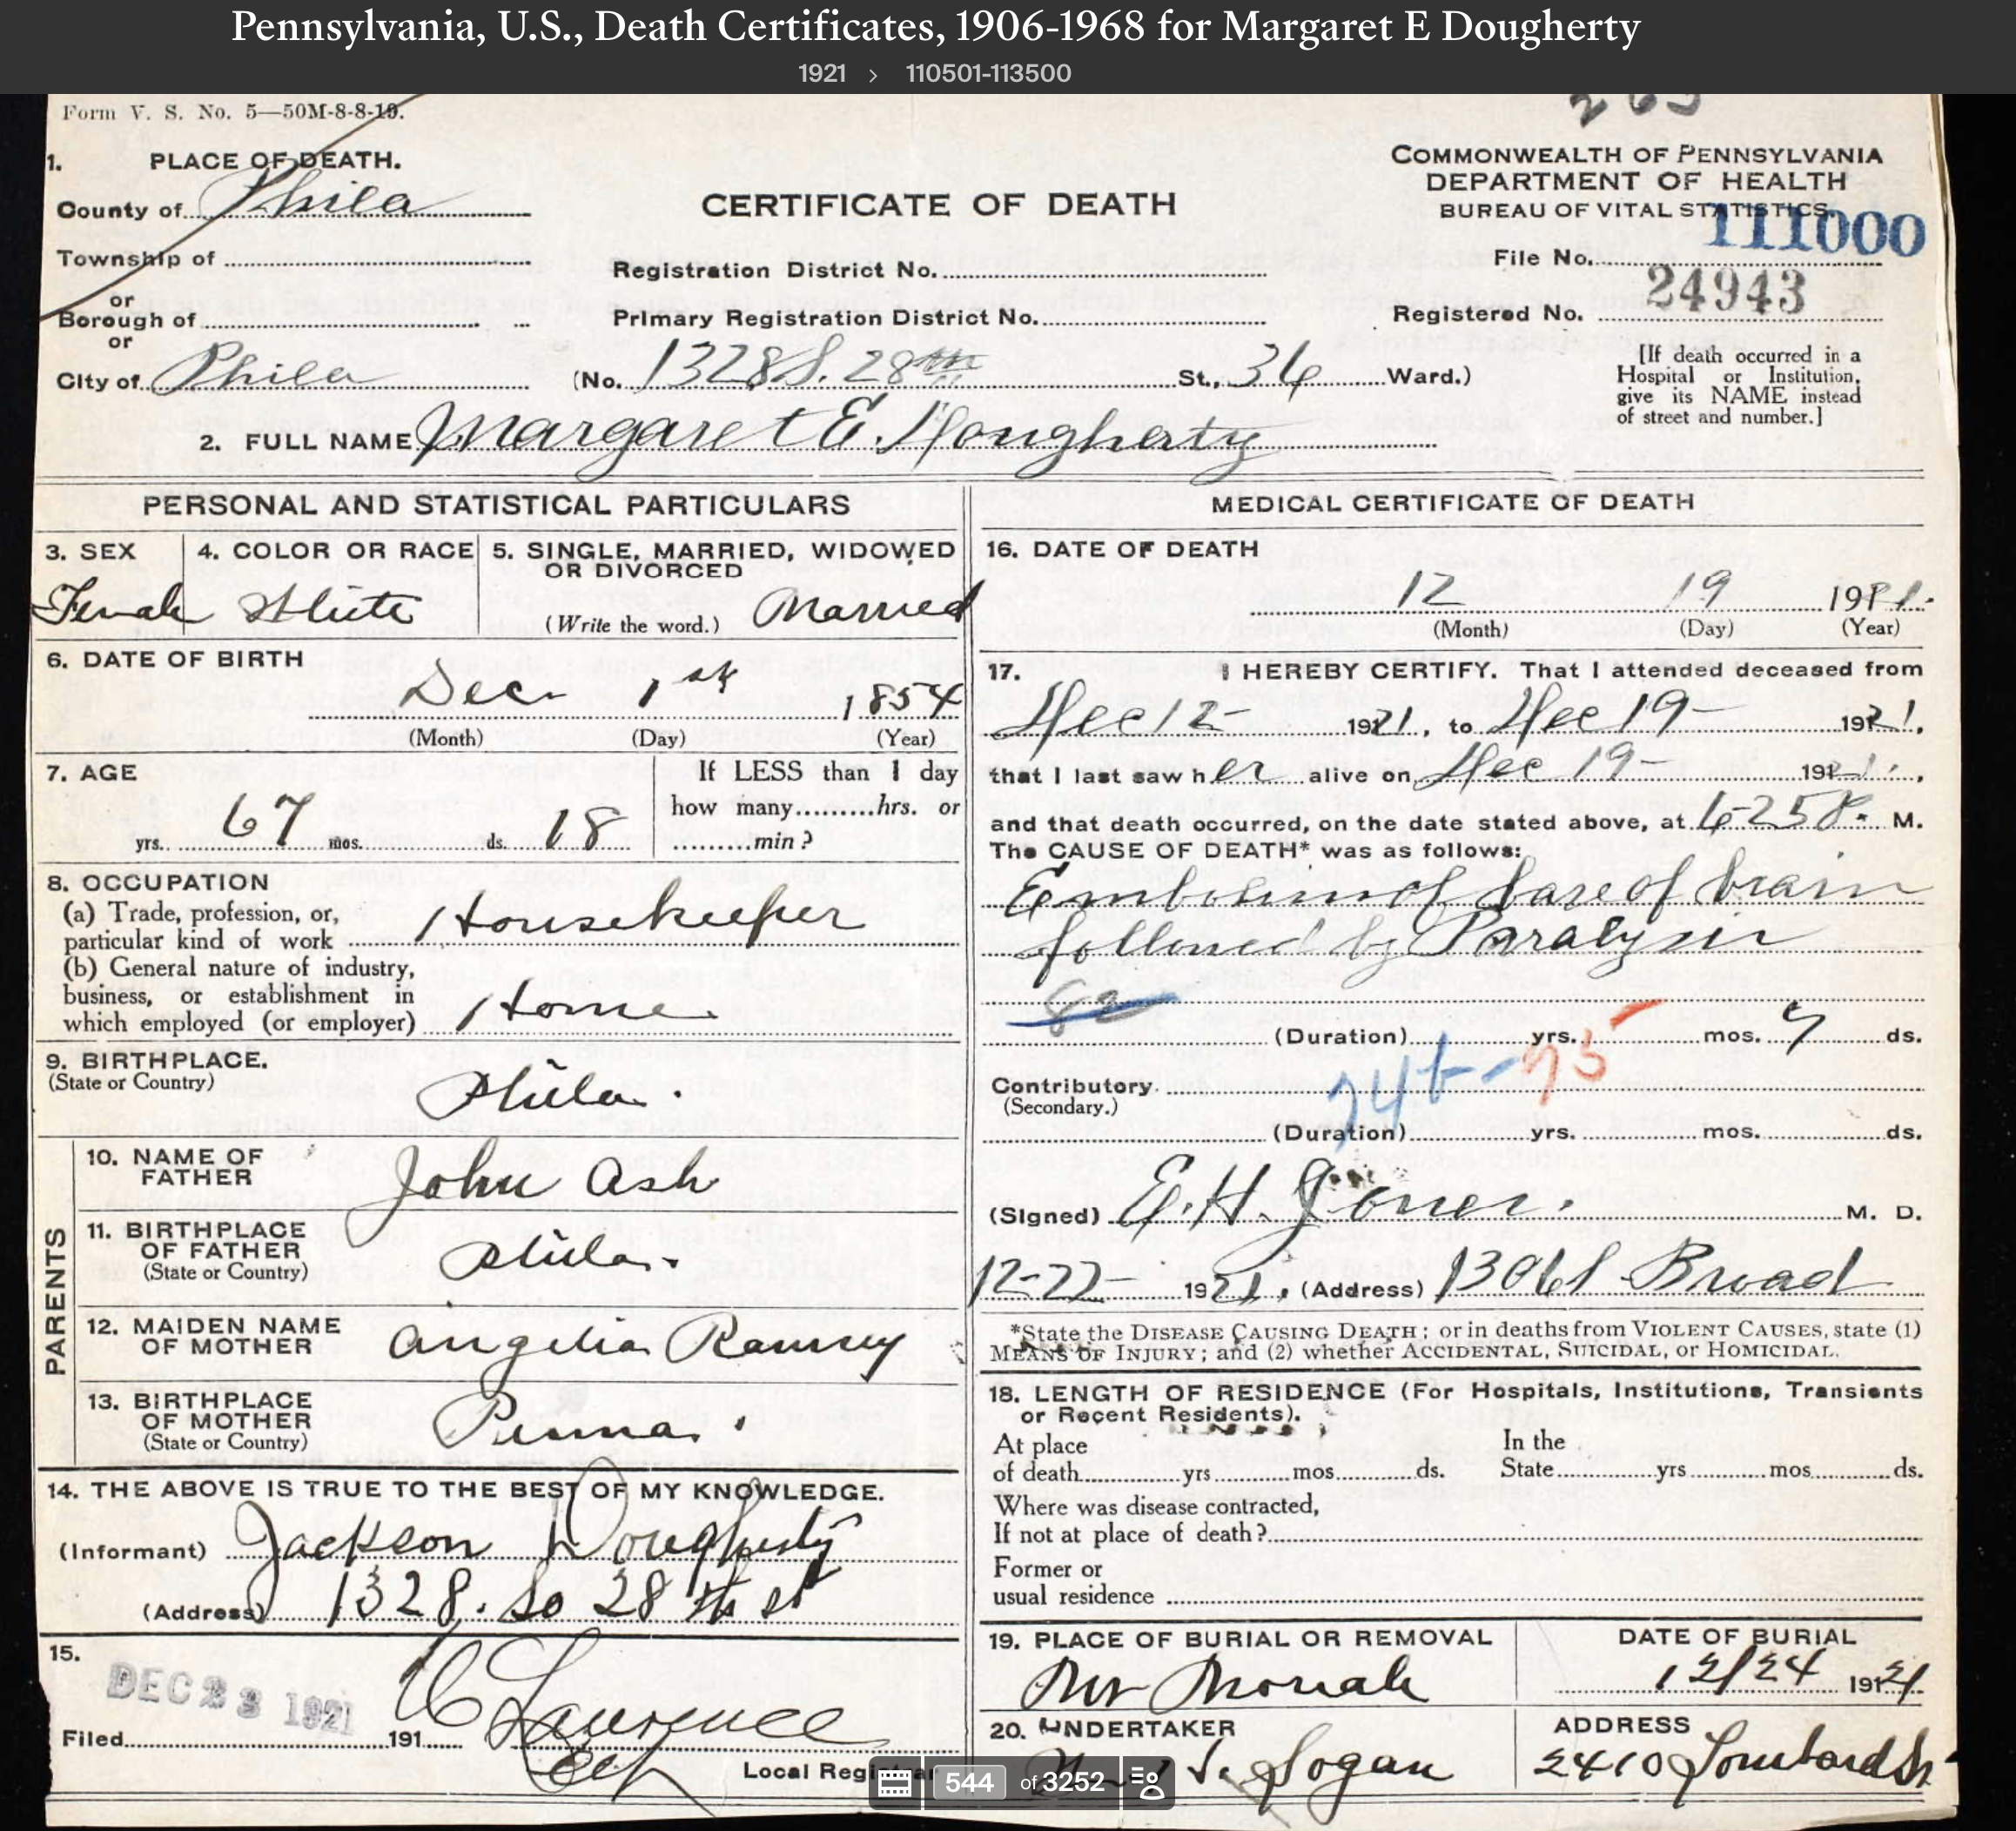 Pennsylvania, U.S., Death Certificates, 1906-1968 for Margaret E Dougherty
1921 > 110501-113500
Form V. S. No. 5—50M-8-8-19.
1. PLACE OF DEATH.
County of Phila
Township of
or
Borough of
or
City of Phila
CERTIFICATE OF DEATH
Registration District No.
Primary Registration District No.
(No. 1328 S. 28th St., 36 Ward.)
COMMONWEALTH OF PENNSYLVANIA
DEPARTMENT OF HEALTH
BUREAU OF VITAL STATISTICS.
File No. 111000
Registered No. 24943
[If death occurred in a
Hospital or Institution,
give its NAME instead
of street and number.]
2. FULL NAME Margaret E. Dougherty
PERSONAL AND STATISTICAL PARTICULARS
3. SEX
Female
4. COLOR OR RACE
White
5. SINGLE, MARRIED, WIDOWED
OR DIVORCED
(Write the word.) Married
6. DATE OF BIRTH
Dec 1st 1854
(Month) (Day) (Year)
7. AGE
67 yrs. mos. 18 ds.
If LESS than 1 day
how many.........hrs. or
.........min ?
8. OCCUPATION
(a) Trade, profession, or,
particular kind of work Housekeeper
(b) General nature of industry,
business, or establishment in
which employed (or employer) Home
9. BIRTHPLACE.
(State or Country)
Phila.
PARENTS
10. NAME OF
FATHER
John Ash
11. BIRTHPLACE
OF FATHER
(State or Country)
Phila.
12. MAIDEN NAME
OF MOTHER
Angelia Ramsey
13. BIRTHPLACE
OF MOTHER
(State or Country)
Penna.
14. THE ABOVE IS TRUE TO THE BEST OF MY KNOWLEDGE.
(Informant) Jackson Dougherty
(Address) 1328. So 28th st
15.
DEC 23 1921
Filed 191
Lawrence
Local Registrar
MEDICAL CERTIFICATE OF DEATH
16. DATE OF DEATH
12 19 1921.
(Month) (Day) (Year)
17. I HEREBY CERTIFY. That I attended deceased from
Dec 12- 1921, to Dec 19- 1921,
that I last saw her alive on Dec 19- 1921,
and that death occurred, on the date stated above, at M.
The CAUSE OF DEATH* was as follows:
Embolism of base of brain
followed by Paralysis
82
(Duration) yrs. mos. 7 ds.
Contributory
(Secondary.)
74b-75
(Duration) yrs. mos. ds.
(Signed) E. H. Jones. M. D.
12-22- 1921, (Address) Broad
*State the DISEASE CAUSING DEATH; or in deaths from VIOLENT CAUSES, state (1)
MEANS OF INJURY; and (2) whether ACCIDENTAL, SUICIDAL, or HOMICIDAL.
18. LENGTH OF RESIDENCE (For Hospitals, Institutions, Transients
or Recent Residents).
At place
of death yrs mos ds.
In the
State yrs mos ds.
Where was disease contracted,
If not at place of death?
Former or
usual residence
19. PLACE OF BURIAL OR REMOVAL
Mt Moriah
DATE OF BURIAL
12/24 1921
20. UNDERTAKER
Logan
ADDRESS
2410 Lombard St
544 of 3252